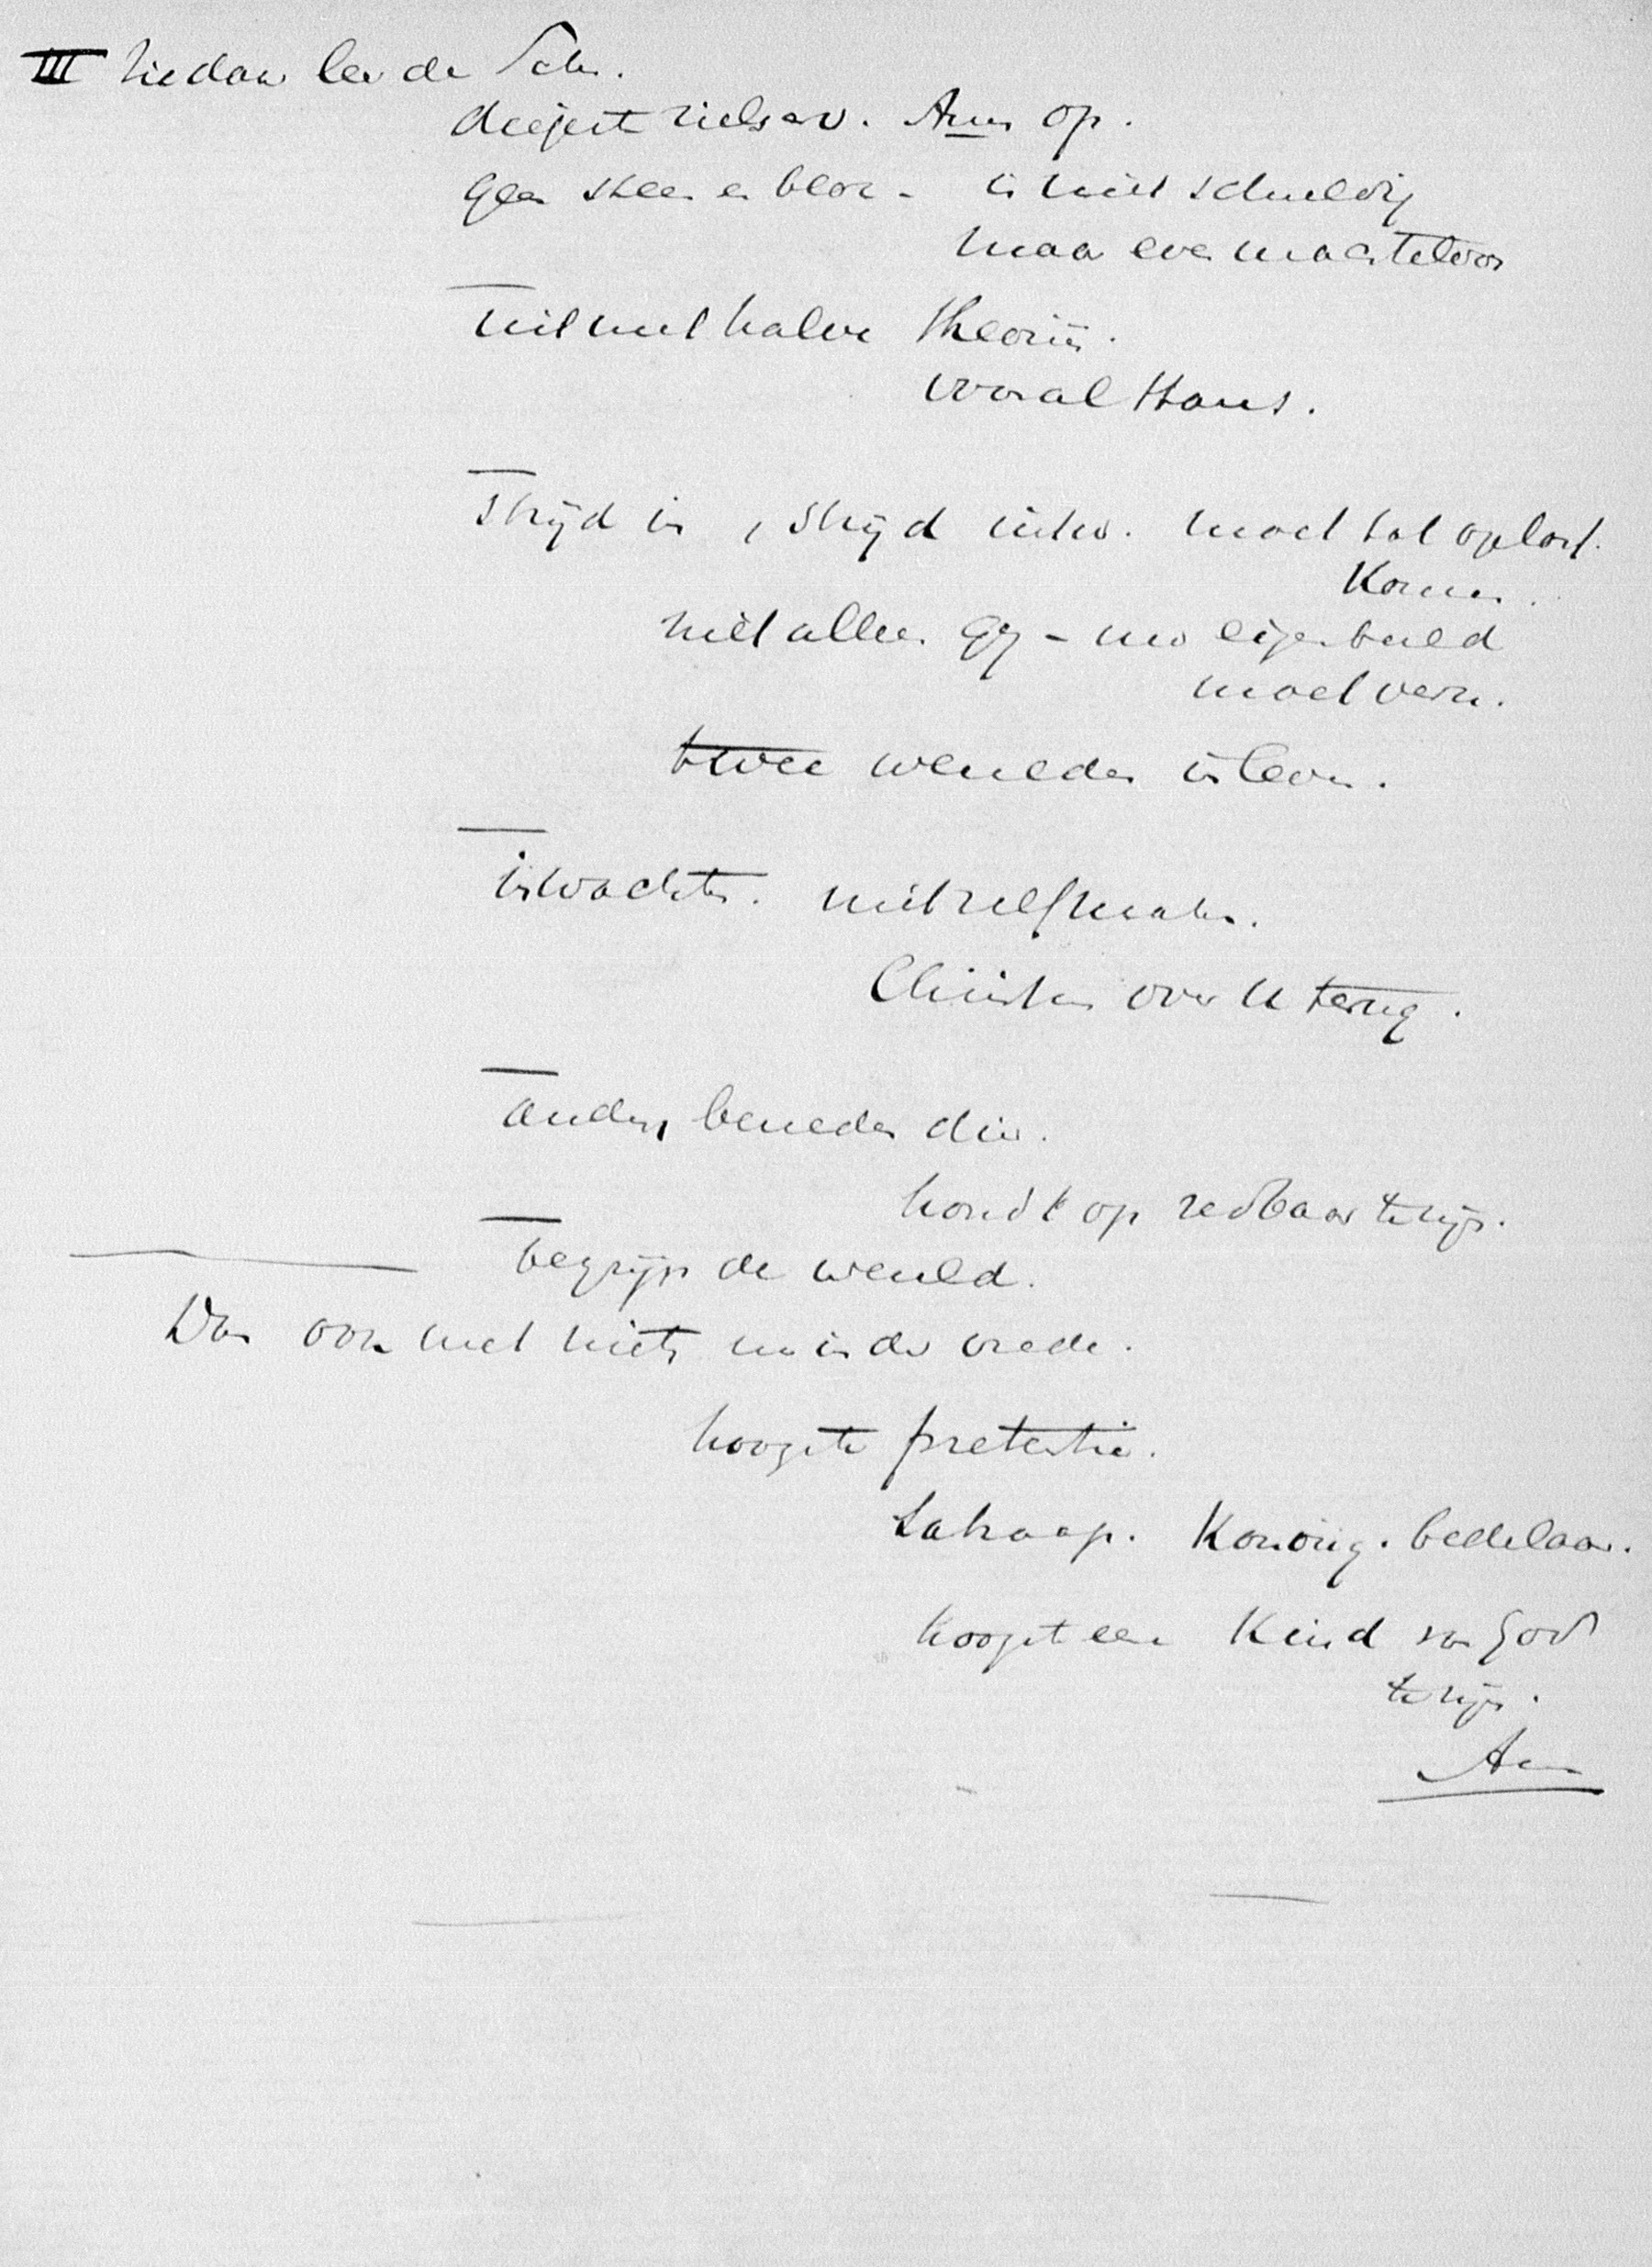 III Ziedaar leer de Schr.
diepst zielsev. Arm op.
Geen steen en bloc - is niet schuldig
maar even machteloos
niet met halve theorieën.
vooral thans.
Strijd in, strijd uitw. moet tot oplost.
Komen.
niet alleen Gij - uw eigen beeld
moet vern.
twee werelden in leven.
is wachten. niet zelf maken.
Christen over U terug.
anders beneden dier.
houdt op redbaar te zijn.
begrijp de wereld.
Dan ook met niets minder vrede.
hoogste pretentie.
Koning. bedelaar.
hoogste een Kind van God
te zijn.
Amen